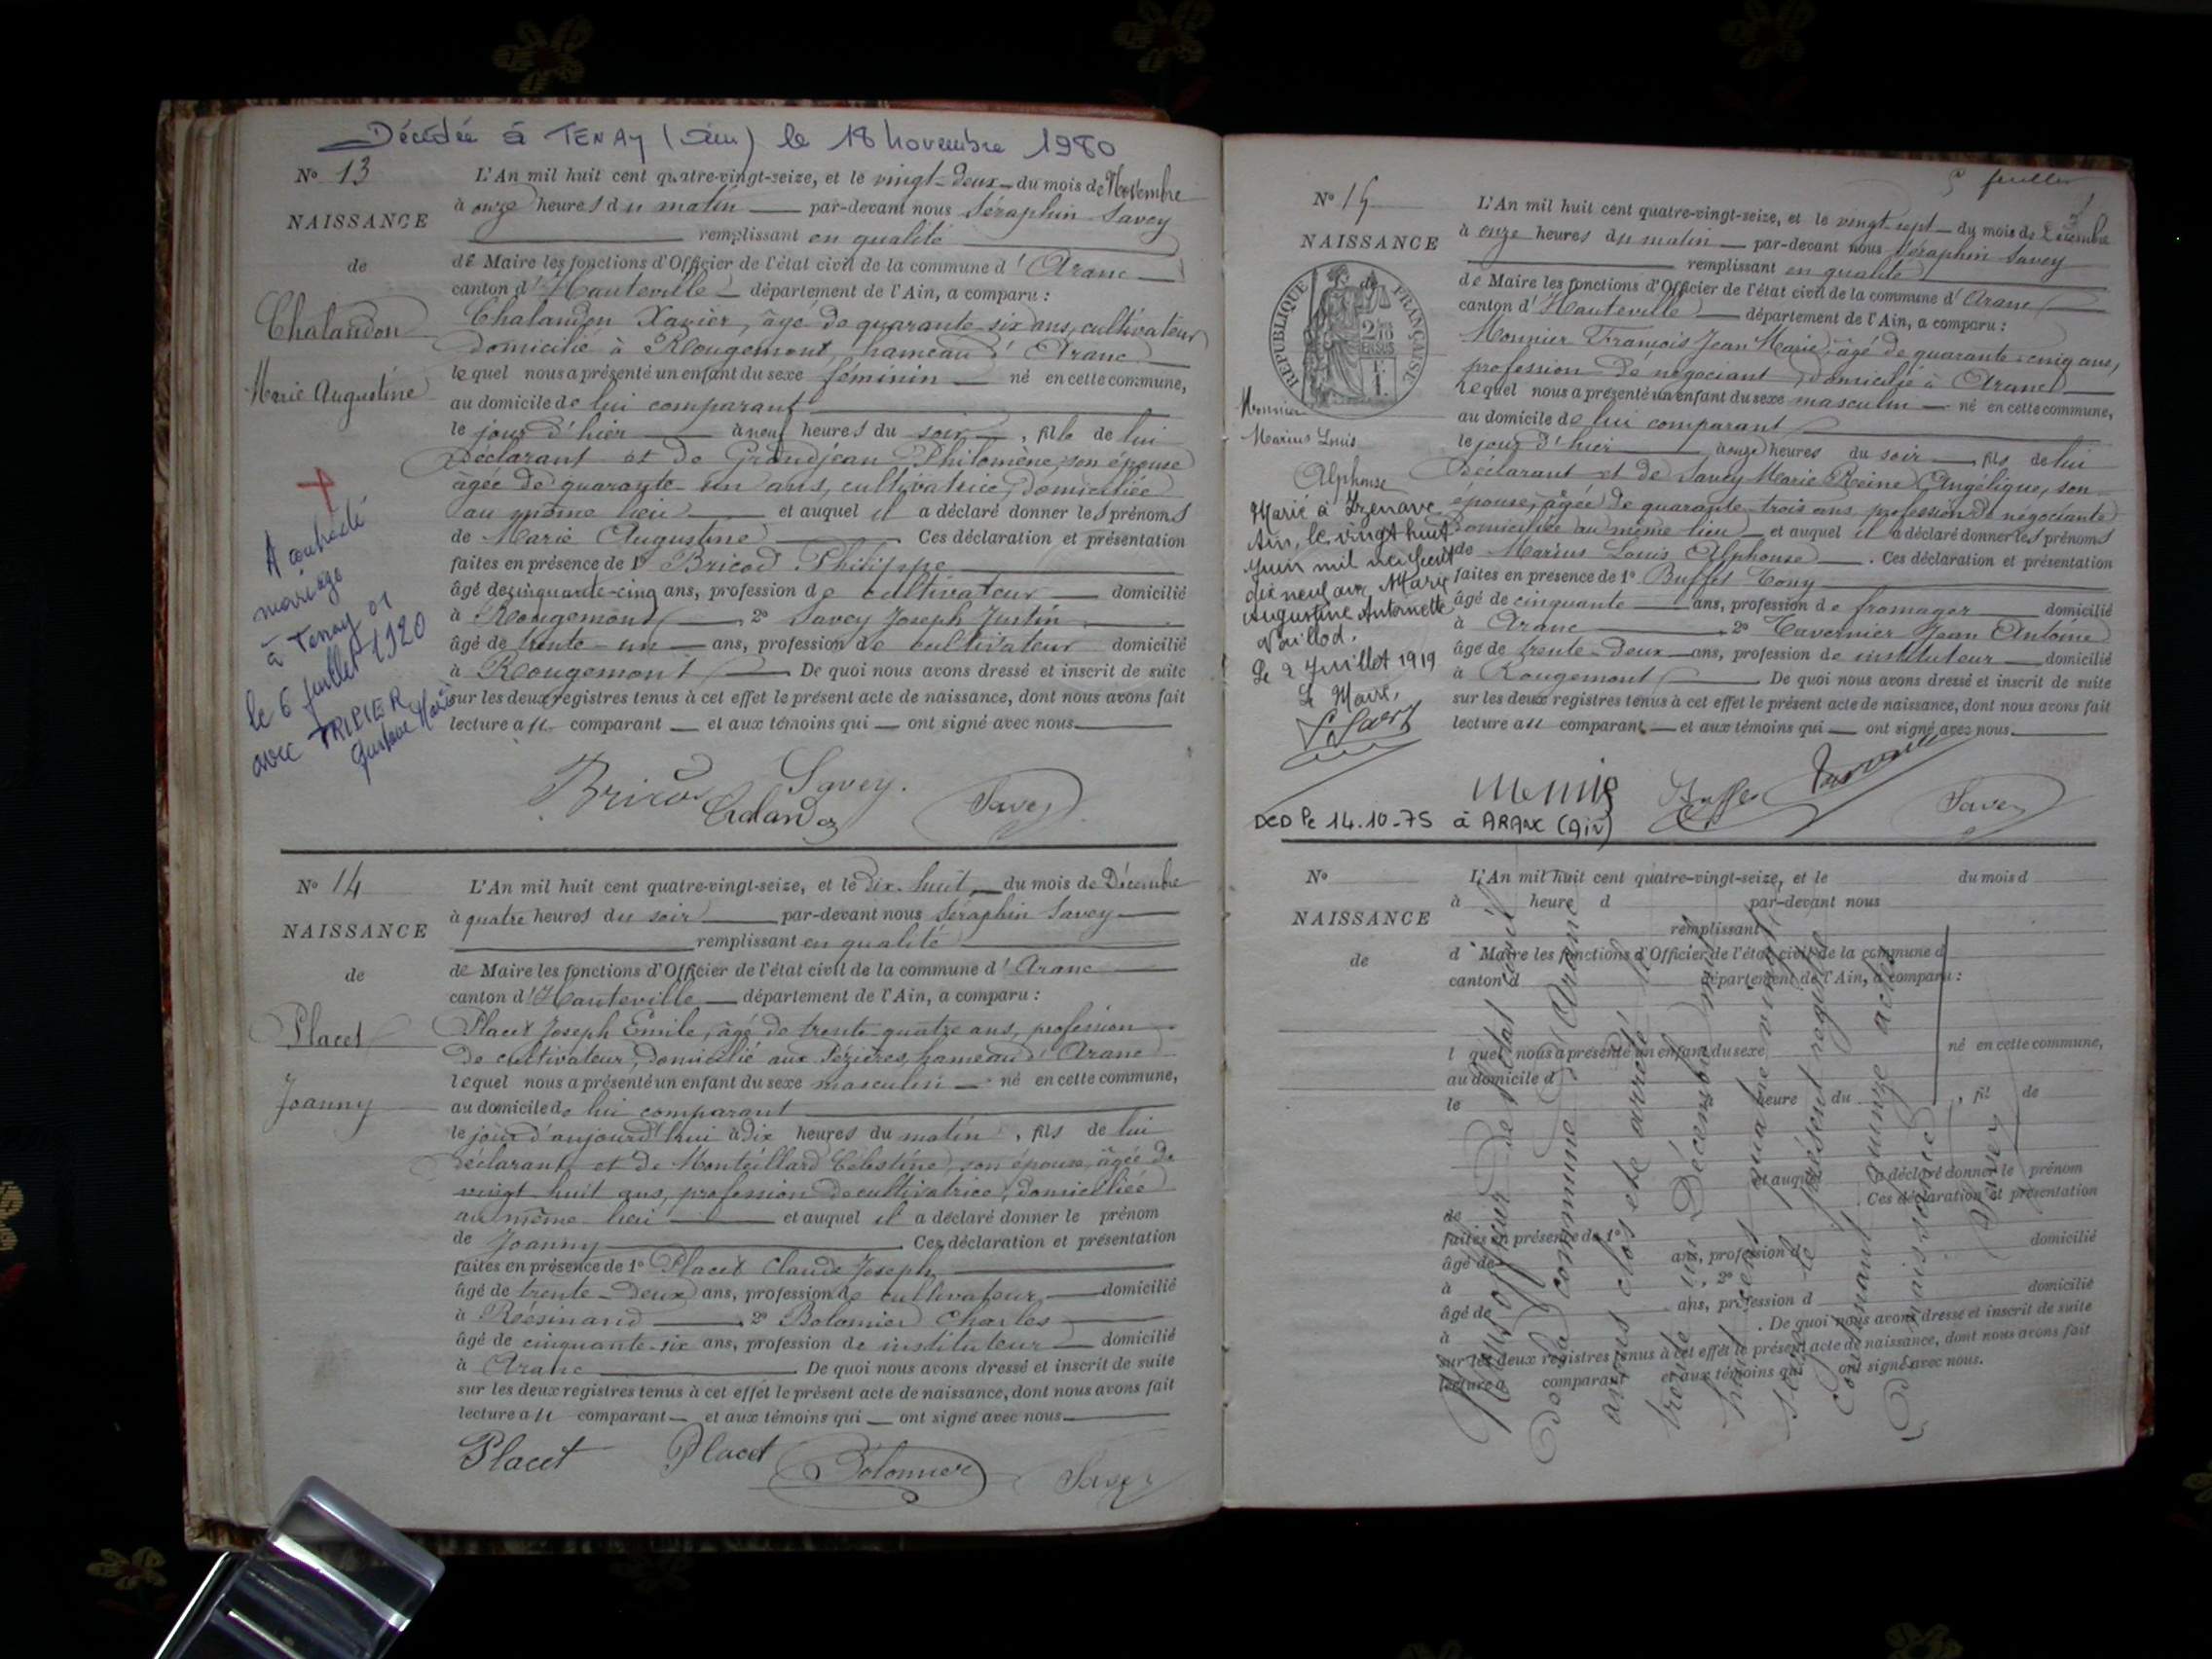 Décédée à TENAY (Ain) le 18 novembre 1980
N° 13
NAISSANCE
de
Chalandon
Marie Augustine
L'An mil huit cent quatre-vingt-seize, et le vingt-deux du mois de Novembre
à onze heures du matin par-devant nous Séraphin Savey
remplissant en qualité
de Maire les fonctions d'Officier de l'état civil de la commune d'Aranc
canton d'Hauteville département de l'Ain, a comparu :
Chalandon Xavier, âgé de quarante-six ans, cultivateur
domicilié à Rougemont, hameau d'Aranc
lequel nous a présenté un enfant du sexe féminin né en cette commune,
au domicile de lui comparant
le jour d'hier à neuf heures du soir, fille de lui
déclarant et de Grandjean Philomène, son épouse
âgée de quarante-un ans, cultivatrice, domiciliée
au même lieu et auquel il a déclaré donner les prénoms
de Marie Augustine Ces déclaration et présentation
faites en présence de 1° Bricod Philippe
âgé de cinquante-cinq ans, profession de cultivateur domicilié
à Rougemont 2° Savey Joseph Justin
âgé de trente-un ans, profession de cultivateur domicilié
à Rougemont De quoi nous avons dressé et inscrit de suite
sur les deux registres tenus à cet effet le présent acte de naissance, dont nous avons fait
lecture au comparant et aux témoins qui ont signé avec nous
A contracté
mariage
à Tenay 01
le 6 juillet 1920
avec TRIPIER
Gustave Marie
Bricod Savey.
Chalandon Savey
N° 14
NAISSANCE
de
Placet
Joanny
L'An mil huit cent quatre-vingt-seize, et le dix-huit du mois de Décembre
à quatre heures du soir par-devant nous Séraphin Savey
remplissant en qualité
de Maire les fonctions d'Officier de l'état civil de la commune d'Aranc
canton d'Hauteville département de l'Ain, a comparu :
Placet Joseph Emile, âgé de trente-quatre ans, profession
de cultivateur, domicilié aux Pézières, hameau d'Aranc
lequel nous a présenté un enfant du sexe masculin né en cette commune,
au domicile de lui comparant
le jour d'aujourd'hui à dix heures du matin, fils de lui
déclarant et de Monteillard Célestine, son épouse, âgée de
vingt-huit ans, profession de cultivatrice, domiciliée
au même lieu et auquel il a déclaré donner le prénom
de Joanny Ces déclaration et présentation
faites en présence de 1° Placet Claude Joseph
âgé de trente-deux ans, profession de cultivateur domicilié
à Résinand 2° Bolomier Charles
âgé de cinquante-six ans, profession de instituteur domicilié
à Aranc De quoi nous avons dressé et inscrit de suite
sur les deux registres tenus à cet effet le présent acte de naissance, dont nous avons fait
lecture au comparant et aux témoins qui ont signé avec nous
Placet Placet Bolomier Savey
feuillet
N° 15
NAISSANCE
de
RÉPUBLIQUE FRANÇAISE
Monnier
Marius Louis
Alphonse
L'An mil huit cent quatre-vingt-seize, et le vingt-sept du mois de Décembre
à onze heures du matin par-devant nous Séraphin Savey
remplissant en qualité
de Maire les fonctions d'Officier de l'état civil de la commune d'Aranc
canton d'Hauteville département de l'Ain, a comparu :
Monnier François Jean Marie, âgé de quarante-cinq ans,
profession de négociant, domicilié à Aranc
lequel nous a présenté un enfant du sexe masculin né en cette commune,
au domicile de lui comparant
le jour d'hier à onze heures du soir, fils de lui
déclarant et de Savey Marie Reine Angélique, son
épouse, âgée de quarante-trois ans, profession de négociante
domiciliée au même lieu et auquel il a déclaré donner les prénoms
de Marius Louis Alphonse. Ces déclaration et présentation
faites en présence de 1° Buffet Tony
âgé de cinquante ans, profession de fromager domicilié
à Aranc 2° Tavernier Jean Antoine
âgé de trente-deux ans, profession de instituteur domicilié
à Rougemont De quoi nous avons dressé et inscrit de suite
sur les deux registres tenus à cet effet le présent acte de naissance, dont nous avons fait
lecture au comparant et aux témoins qui ont signé avec nous.
Marié à Izenave
Ain, le vingt huit
Juin mil neuf cent
dix neuf avec Marie
Augustine Antoinette
Vaillod.
Le 2 Juillet 1919
Le Maire,
DCD le 14.10.75 à ARANC (Ain)
Savey
N°
NAISSANCE
de
L'An mil huit cent quatre-vingt-seize, et le du mois d
à heure d par-devant nous
remplissant
d Maire les fonctions d'Officier de l'état civil de la commune d
canton d département de l'Ain, a comparu :
l quel nous a présenté un enfant du sexe né en cette commune,
au domicile d
le heure du , fil de
et auquel a déclaré donner le prénom
de Ces déclaration et présentation
faites en présence de 1°
âgé de ans, profession d domicilié
à , 2°
âgé de ans, profession d domicilié
à . De quoi nous avons dressé et inscrit de suite
sur les deux registres tenus à cet effet le présent acte de naissance, dont nous avons fait
lecture a comparan et aux témoins qui ont signé avec nous.
Nous officier de l'état civil
de la commune d'Aranc
avons clos et arrêté le
trente un Décembre mil
huit cent quatre vingt
seize le présent registre
contenant quinze actes
de naissance
Savey